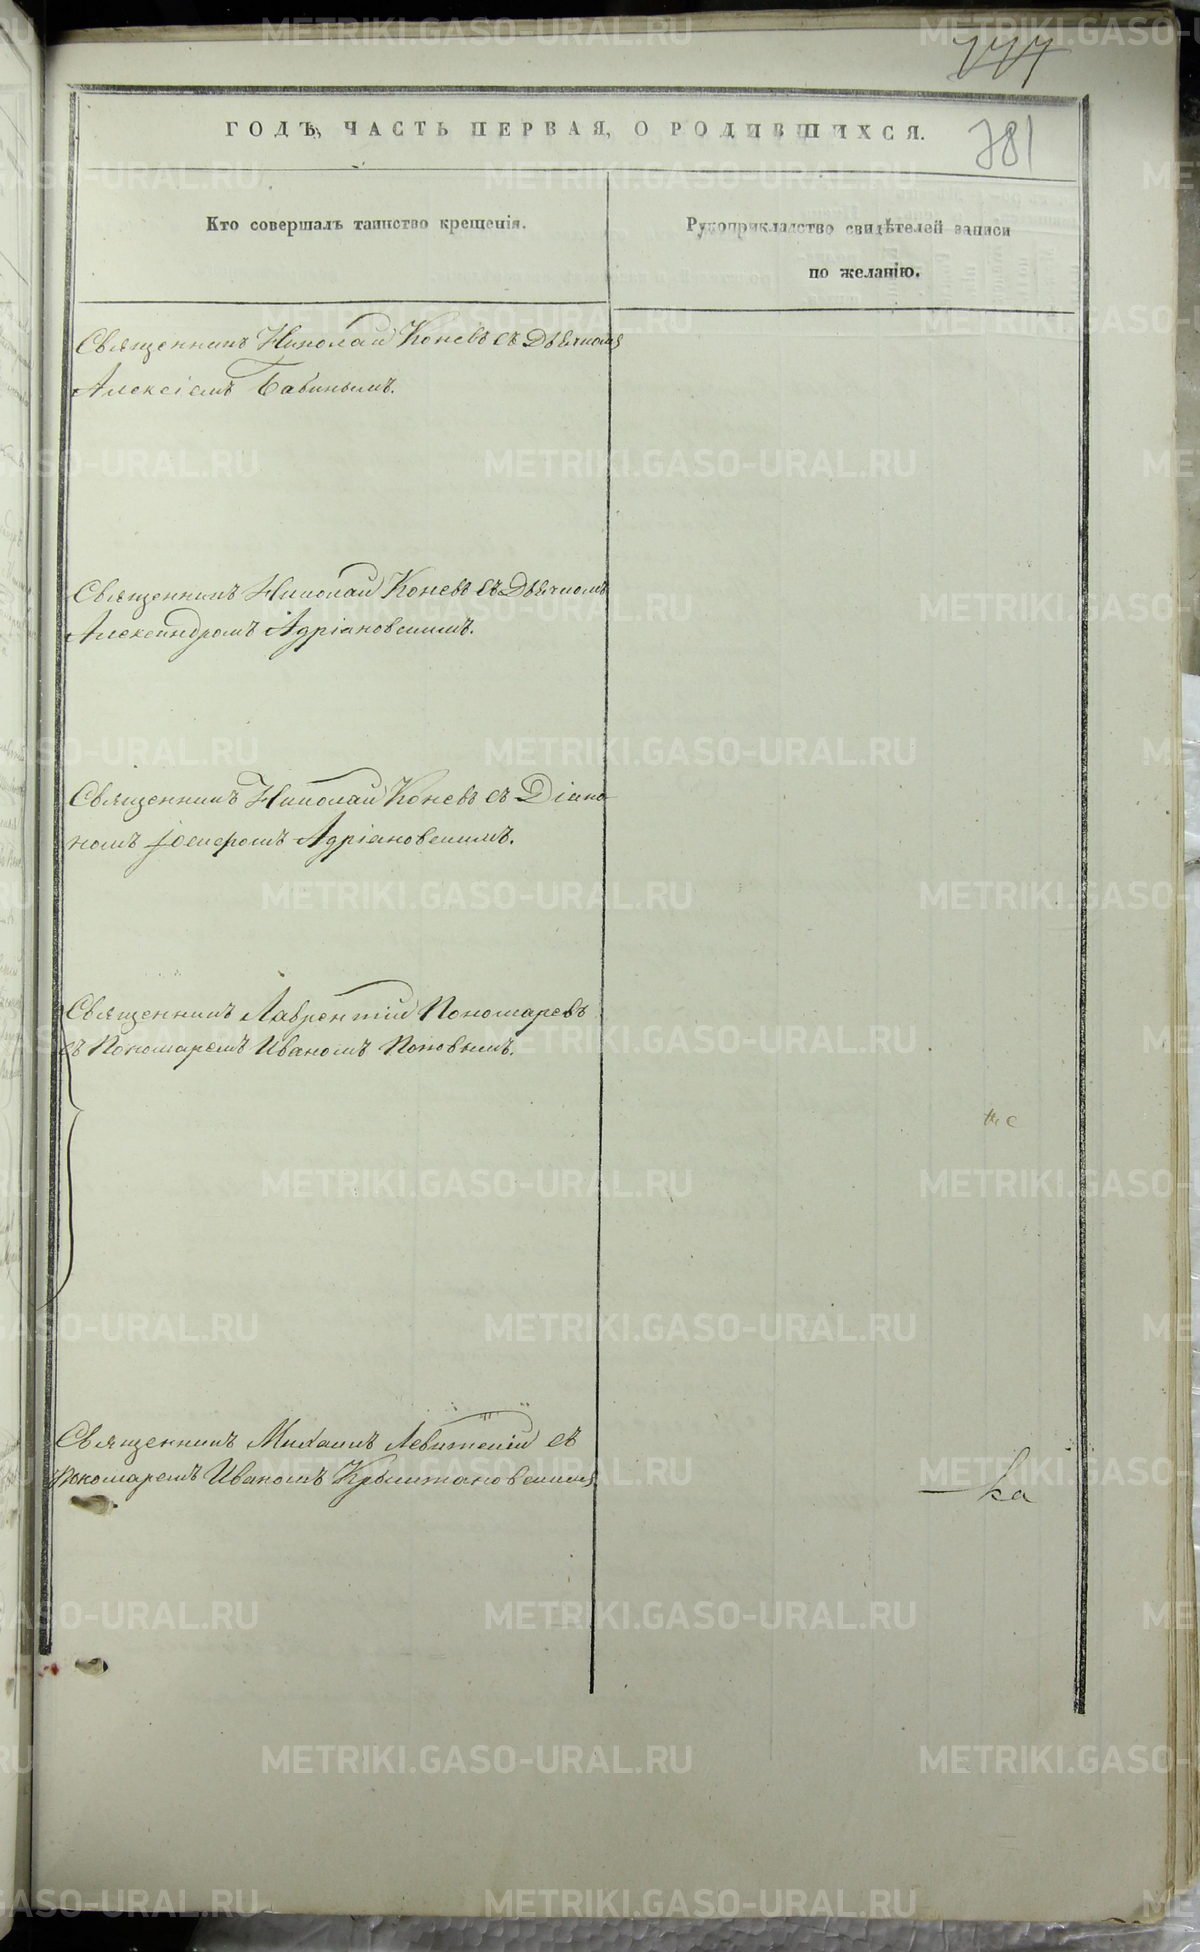 777
ГОДЪ, ЧАСТЬ ПЕРВАЯ, О РОДИВШИХСЯ.
781
Кто совершалъ таинство крещенія.
Рукоприкладство свидѣтелей записи
по желанію.
Священникъ Николай Коневъ съ Дьячкомъ
Алексіемъ Бабинымъ.
Священникъ Николай Коневъ съ Дьячкомъ
Александромъ Адріановскимъ.
Священникъ Николай Коневъ съ Діако-
номъ Іосифомъ Адріановскимъ.
Священникъ Лаврентій Пономаревъ
съ Пономаремъ Иваномъ Поповымъ.
Священникъ Михаилъ Левитскій съ
Пономаремъ Иваномъ Крыжановскимъ.
ка
METRIKI.GASO-URAL.RU